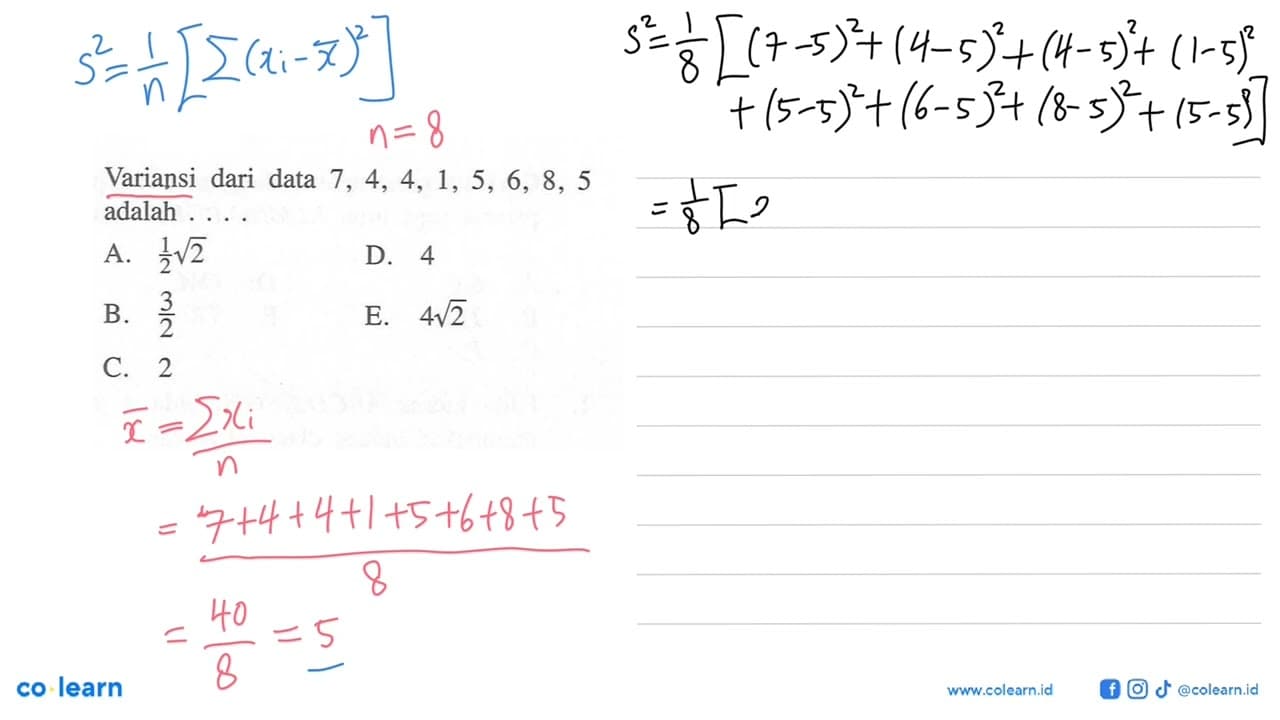 S² = 1/n [∑(xi - x̄)²]
n = 8
Variansi dari data 7, 4, 4, 1, 5, 6, 8, 5
adalah . . . .
A. 1/2√2 D. 4
B. 3/2 E. 4√2
C. 2
x̄ = ∑xi/n
= 7+4+4+1+5+6+8+5 / 8
= 40/8 = 5
S² = 1/8 [(7-5)² + (4-5)² + (4-5)² + (1-5)²
+ (5-5)² + (6-5)² + (8-5)² + (5-5)²]
= 1/8 [2
co learn
www.colearn.id @colearn.id